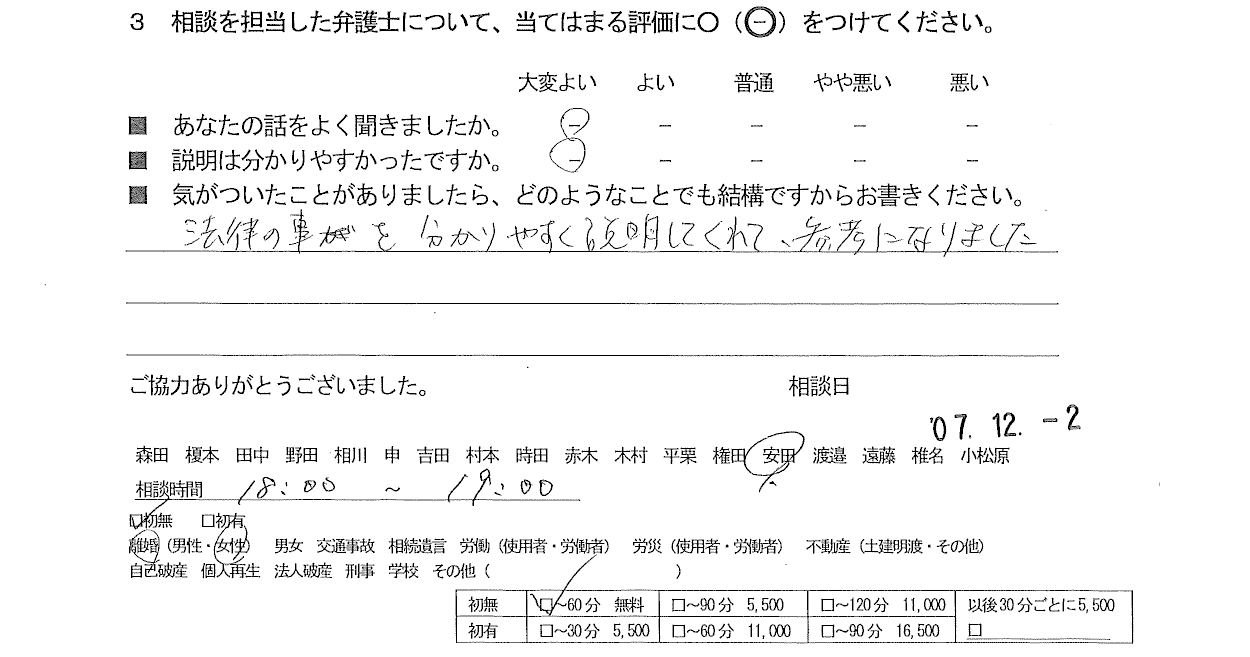 3 相談を担当した弁護士について、当てはまる評価に〇（㊀）をつけてください。
大変よい よい 普通 やや悪い 悪い
■ あなたの話をよく聞きましたか。 － － － － －
■ 説明は分かりやすかったですか。 － － － － －
■ 気がついたことがありましたら、どのようなことでも結構ですからお書きください。
法律の事を分かりやすく説明してくれて、参考になりました
ご協力ありがとうございました。 相談日
'07.12.-2
森田 榎本 田中 野田 相川 申 吉田 村本 時田 赤木 木村 平栗 権田 安田 渡邉 遠藤 椎名 小松原
相談時間 18:00 ～ 19:00
□初無 □初有
離婚（男性・女性） 男女 交通事故 相続遺言 労働（使用者・労働者） 労災（使用者・労働者） 不動産（土建明渡・その他）
自己破産 個人再生 法人破産 刑事 学校 その他（ ）
初無 □～60分 無料 □～90分 5,500 □～120分 11,000 以後30分ごとに5,500
初有 □～30分 5,500 □～60分 11,000 □～90分 16,500 □